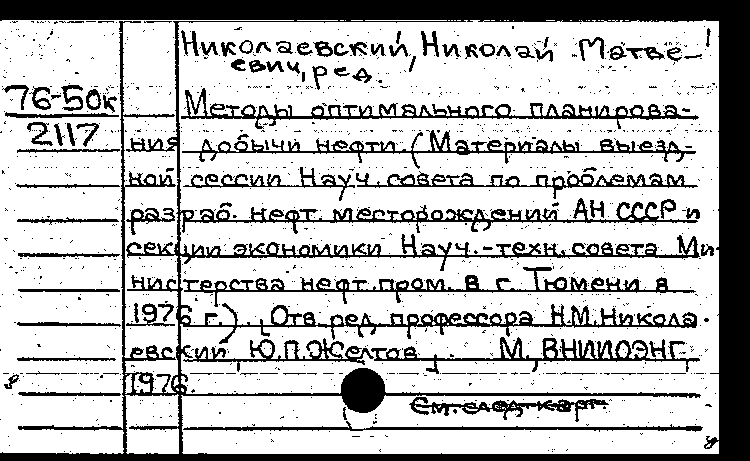 Николаевский, Николай Матве-
евич, ред.
76-50к
Методы оптимального планирова-
2117
ния добычи нефти. (Материалы выезд-
ной сессии Науч. совета по проблемам
разраб. нефт. месторождений АН СССР и
секции экономики Науч.-техн. совета Ми-
нистерства нефт. пром. в г. Тюмени в
1976 г.). Отв. ред. профессора Н.М. Никола-
евский, Ю.П. Желтов. М., ВНИИОЭНГ,
1976.
См. след. карт.